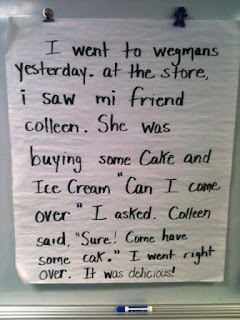 I went to wegmans
yesterday. at the store,
i saw mi friend
colleen. She was
buying some Cake and
Ice Cream "Can I come
over" I asked. Colleen
said, "Sure! Come have
some cak." I went right
over. It was delicious!